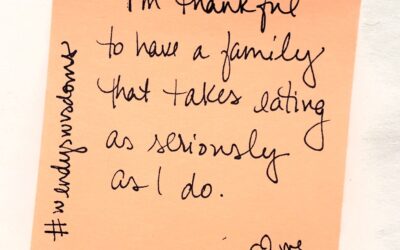 I'm thankful
to have a family
that takes eating
as seriously
as I do.
#wendyswisdoms